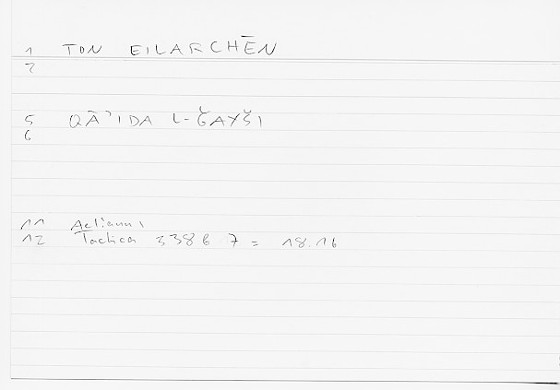 1 TON EILARCHĒN
2
5 QĀʾIDA L-ǦAYŠI
6
11 Aelianus
12 Tactica 3386 7 = 18.16